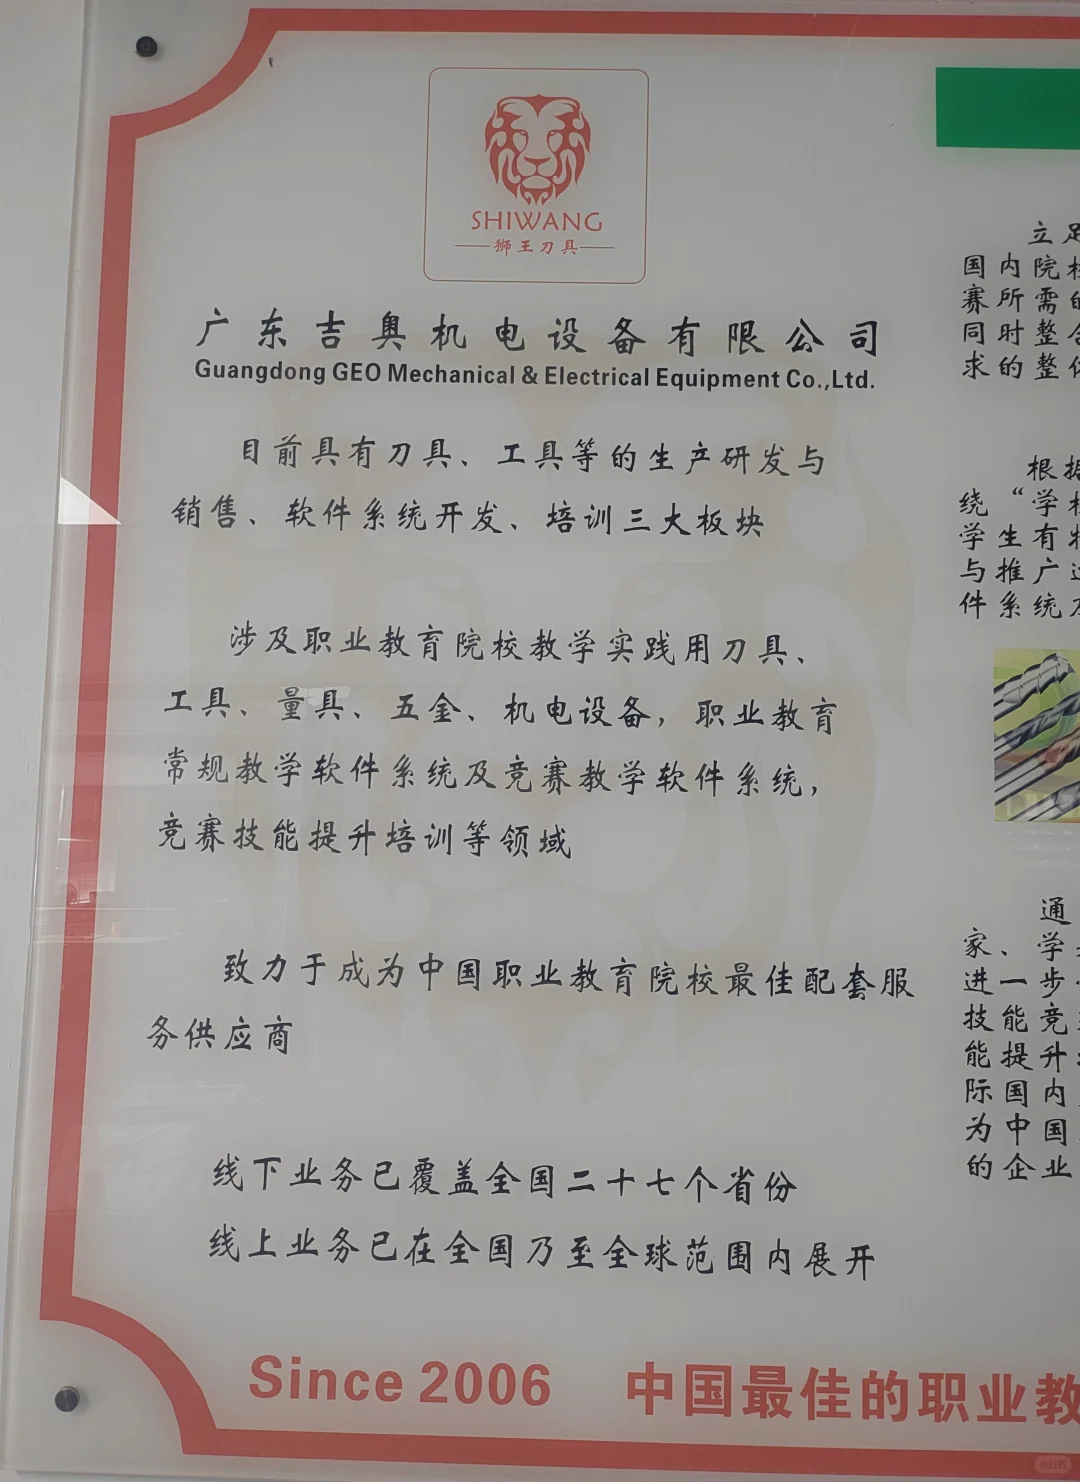 SHIWANG
狮王刀具
广东吉奥机电设备有限公司
Guangdong GEO Mechanical & Electrical Equipment Co.,Ltd.
目前具有刀具、工具等的生产研发与
销售、软件系统开发、培训三大板块
涉及职业教育院校教学实践用刀具、
工具、量具、五金、机电设备，职业教育
常规教学软件系统及竞赛教学软件系统，
竞赛技能提升培训等领域
致力于成为中国职业教育院校最佳配套服
务供应商
线下业务已覆盖全国二十七个省份
线上业务已在全国乃至全球范围内展开
Since 2006 中国最佳的职业教
立足
国内院校
赛所需的
同时整合
求的整体
根据
绕“学校
学生有
与推广
件系统及
通
家、学
进一步
技能竞
能提升
际国内
为中国
的企业
小红书